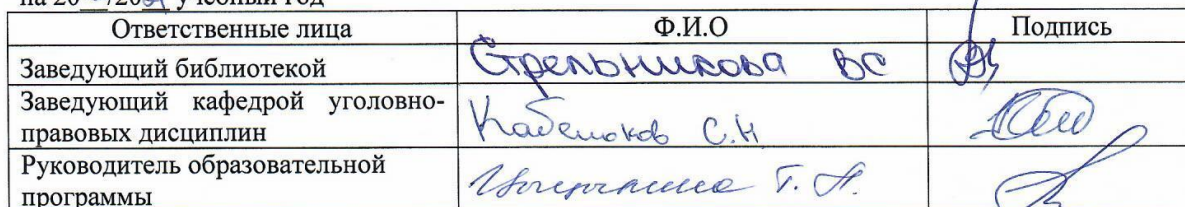 на 20 /20 учебный год
Ответственные лица Ф.И.О Подпись
Заведующий библиотекой Стрельникова ВС
Заведующий кафедрой уголовно-
правовых дисциплин С.Н
Руководитель образовательной
программы